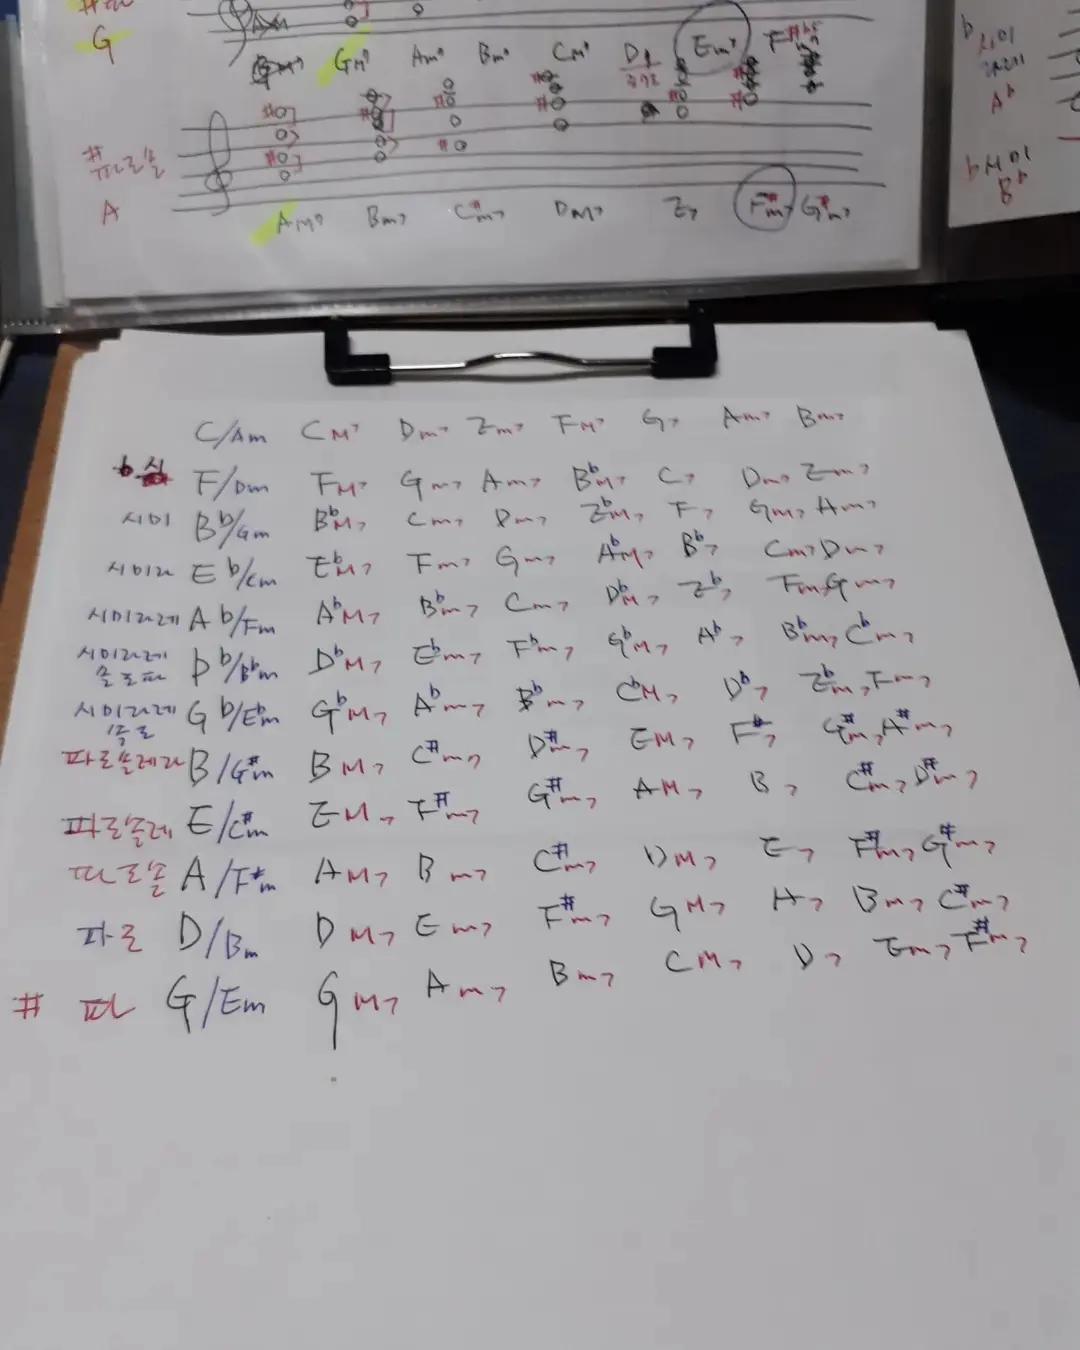 G
GM7 Am7 Bm7 CM7 D7 Em7
#파도솔
A
AM7 Bm7 C#m7 DM7 E7 F#m7 G#m7
b 시미
라레
Ab
b 시미
Bb
C/Am CM7 Dm7 Em7 FM7 G7 Am7 Bm7
b 시 F/Dm FM7 Gm7 Am7 BbM7 C7 Dm7 Em7
시미 Bb/Gm BbM7 Cm7 Dm7 EbM7 F7 Gm7 Am7
시미라 Eb/Cm EbM7 Fm7 Gm7 AbM7 Bb7 Cm7 Dm7
시미라레 Ab/Fm AbM7 Bbm7 Cm7 DbM7 Eb7 Fm7 Gm7
시미라레
솔도파 Db/Bbm DbM7 Ebm7 Fbm7 GbM7 Ab7 Bbm7 Cbm7
시미라레
솔도 Gb/Ebm GbM7 Abm7 Bbm7 CbM7 Db7 Ebm7 Fm7
파도솔레라 B/G#m BM7 C#m7 D#m7 EM7 F#7 G#m7 A#m7
파도솔레 E/C#m EM7 F#m7 G#m7 AM7 B7 C#m7 D#m7
파도솔 A/F#m AM7 Bm7 C#m7 DM7 E7 F#m7 G#m7
파도 D/Bm DM7 Em7 F#m7 GM7 A7 Bm7 C#m7
# 파 G/Em GM7 Am7 Bm7 CM7 D7 Em7 F#m7